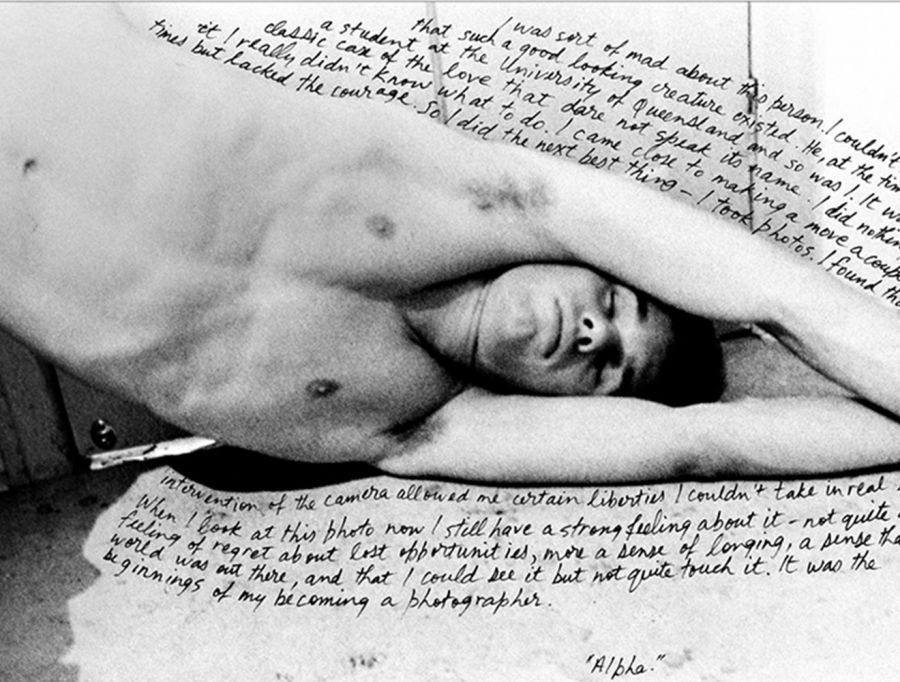 I was sort of mad about this person. I couldn't
that such a good looking creature existed. He, at the tim
a student at the University of Queensland and so was I. It wa
classic case of the love that dare not speak its name. I did nothin
it I really didn't know what to do. I came close to making a move a coupl
times but lacked the courage. So I did the next best thing – I took photos. I found tha
intervention of the camera allowed me certain liberties I couldn't take in real
When I look at this photo now I still have a strong feeling about it – not quite a
feeling of regret about lost opportunities, more a sense of longing, a sense tha
world was out there, and that I could see it but not quite touch it. It was the
beginnings of my becoming a photographer.
"Alpha."